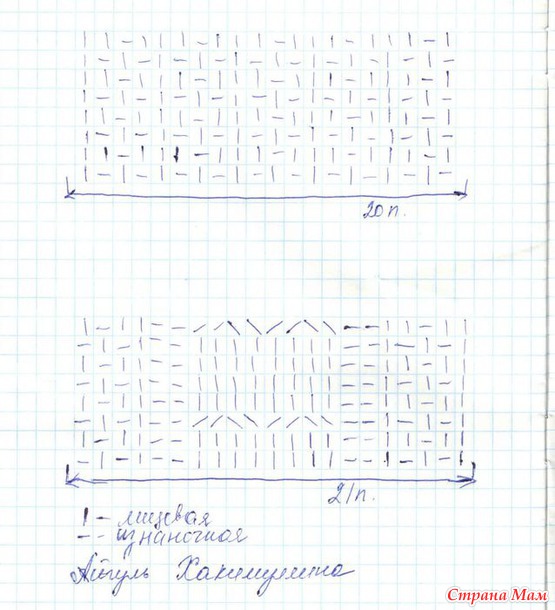 20 п.
21 п.
| - лицевая
-- изнаночная
Айгуль Хакимуллина
Страна Мам